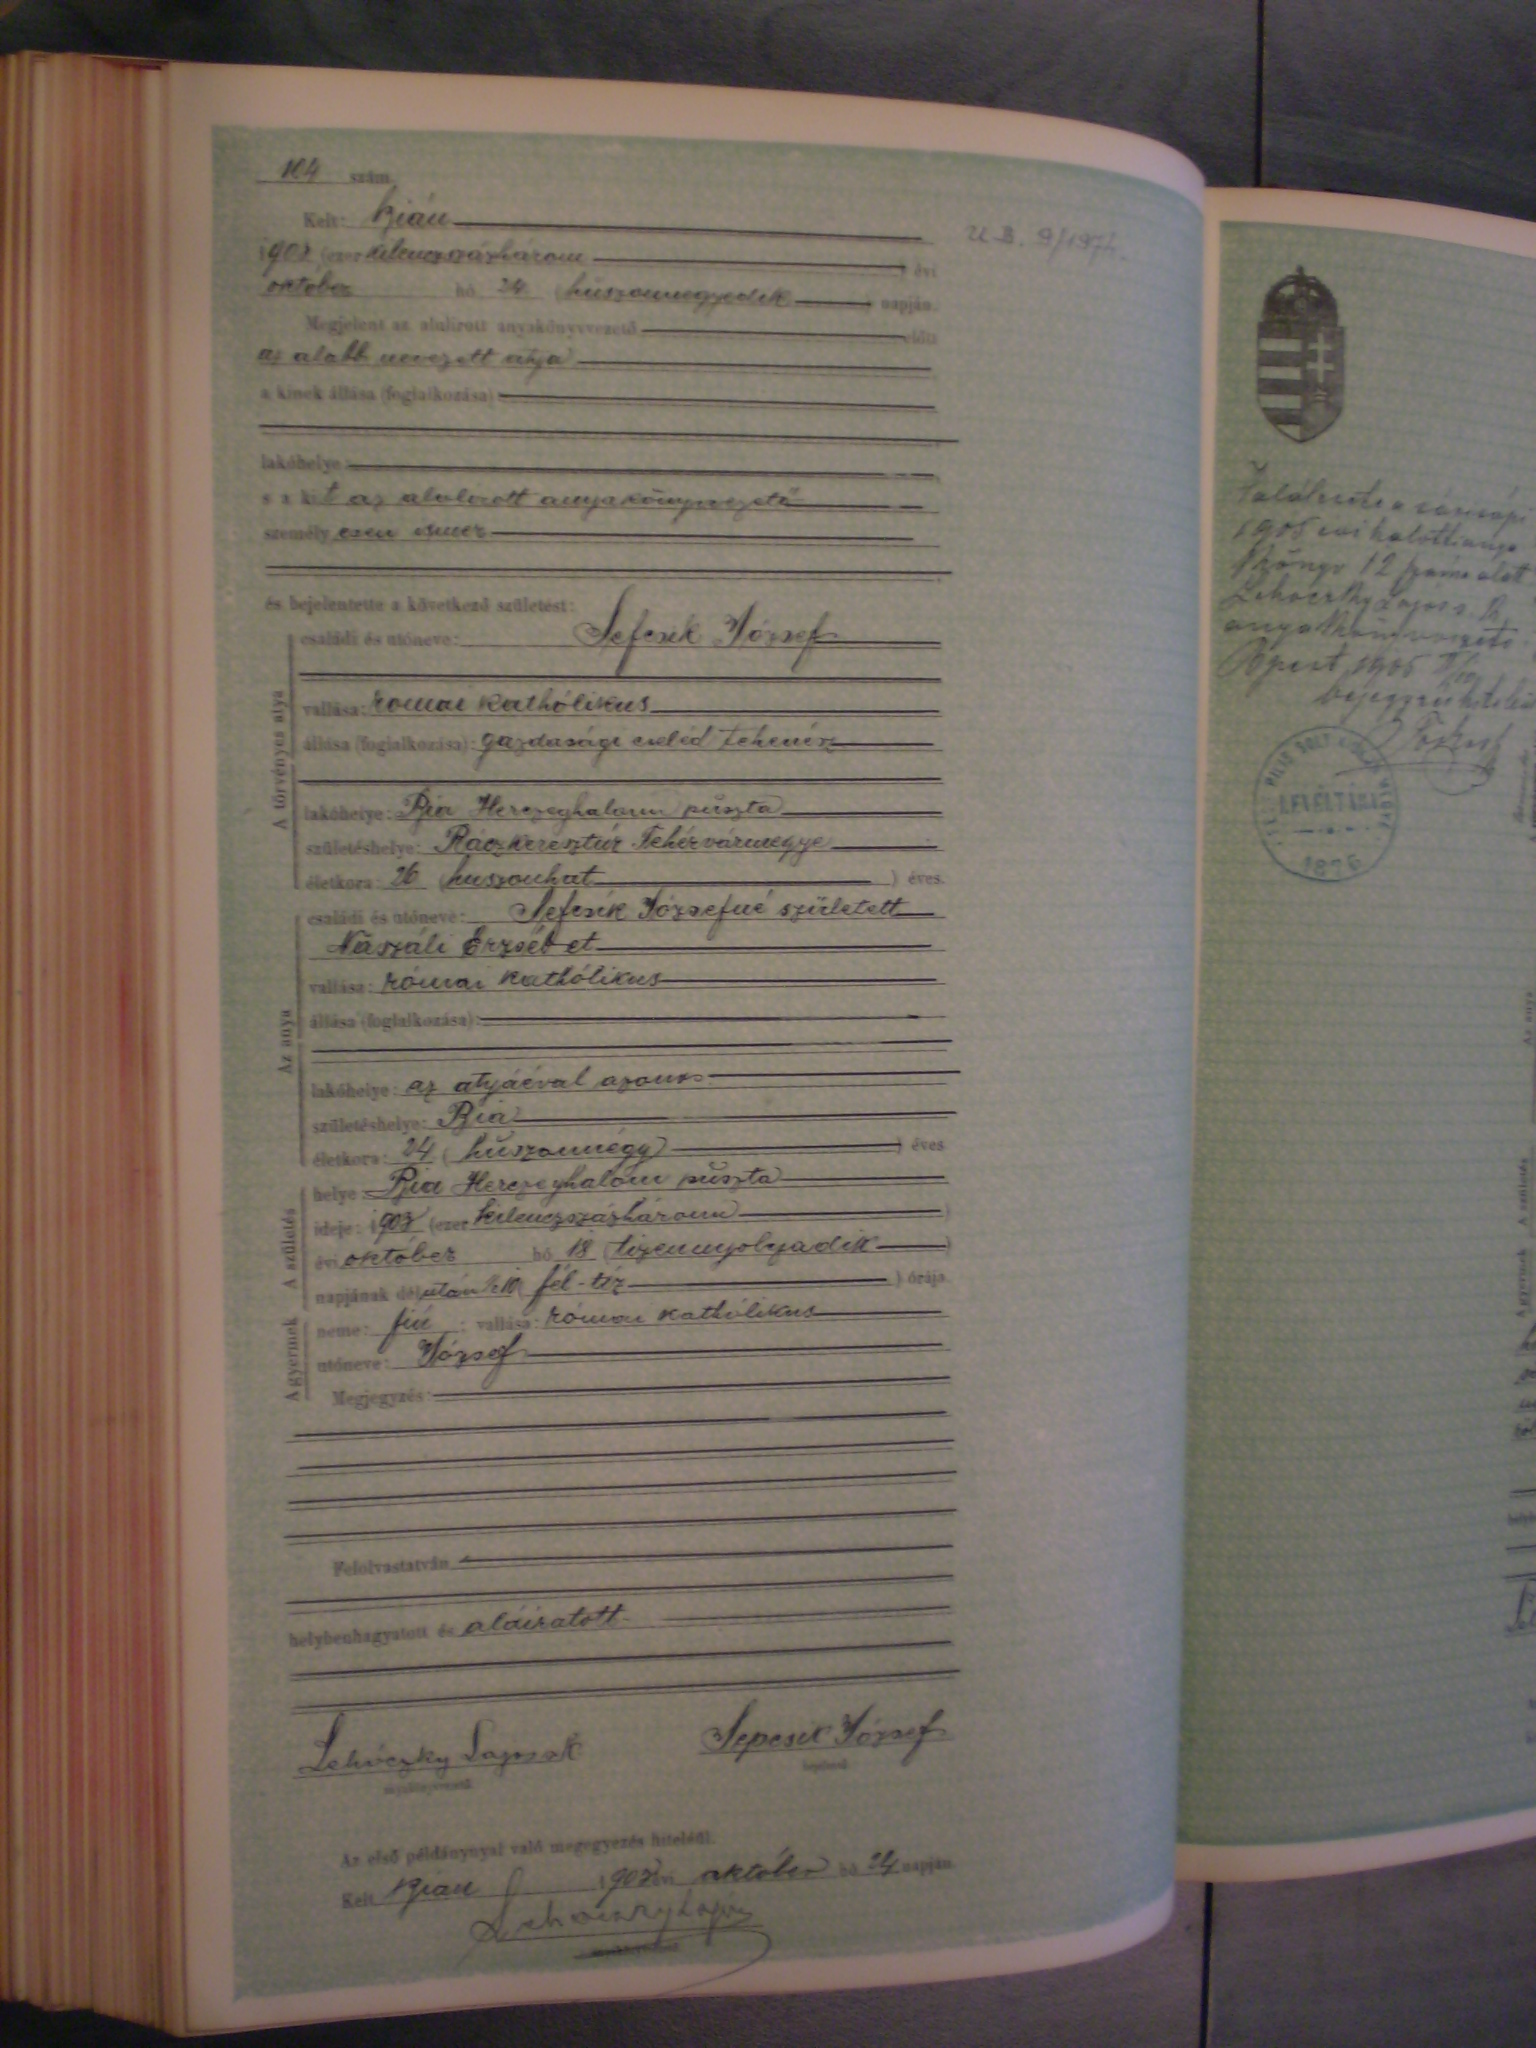 104 szám.
Kelt: Bián
1903 (ezer kilenczszázhárom ) évi
október hó 24 (huszonnegyedik ) napján.
Megjelent az alulírott anyakönyvvezető előtt
az alább nevezett atya
a kinek állása (foglalkozása)
lakóhelye
s a kit az alulirott anyakönyvvezető
személyesen ismer
és bejelentette a következő születést:
A törvényes atya
családi és utóneve: Sefcsik József
vallása: római katholikus
állása (foglalkozása): gazdasági cseléd tehenész
lakóhelye: Bia Herczeghalom puszta
születéshelye: Ráczkeresztúr Fehérvármegye
életkora: 26 (huszonhat ) éves.
Az anya
családi és utóneve: Sefcsik Józsefné született
Naszáli Erzsébet
vallása: római katholikus
állása (foglalkozása):
lakóhelye: az atyáéval azonos
születéshelye: Bia
életkora: 24 (huszonnégy ) éves
A születés
helye: Bia Herczeghalom puszta
ideje: 1903 (ezer kilenczszázhárom )
évi október hó 18 (tizennyolczadik )
napjának délután ½10 (fél-tíz ) órája
A gyermek
neme: fiú ; vallása: római katholikus
utóneve: József
Megjegyzés:
Felolvastatván
helybenhagyatott és aláiratott
Lehoczky Lajos Sepcsik József
anyakönyvvezető bejelentő
Az első példánynyal való megegyezés hiteléül.
Kelt Bián 1903 évi október hó 24 napján
Lehoczky Lajos
U.B. 9/1974.
1905 évi halotti anya
könyv 12 száma alatt
Bpest 1905
PILIS SOLT
LEVÉLTÁRA
1876